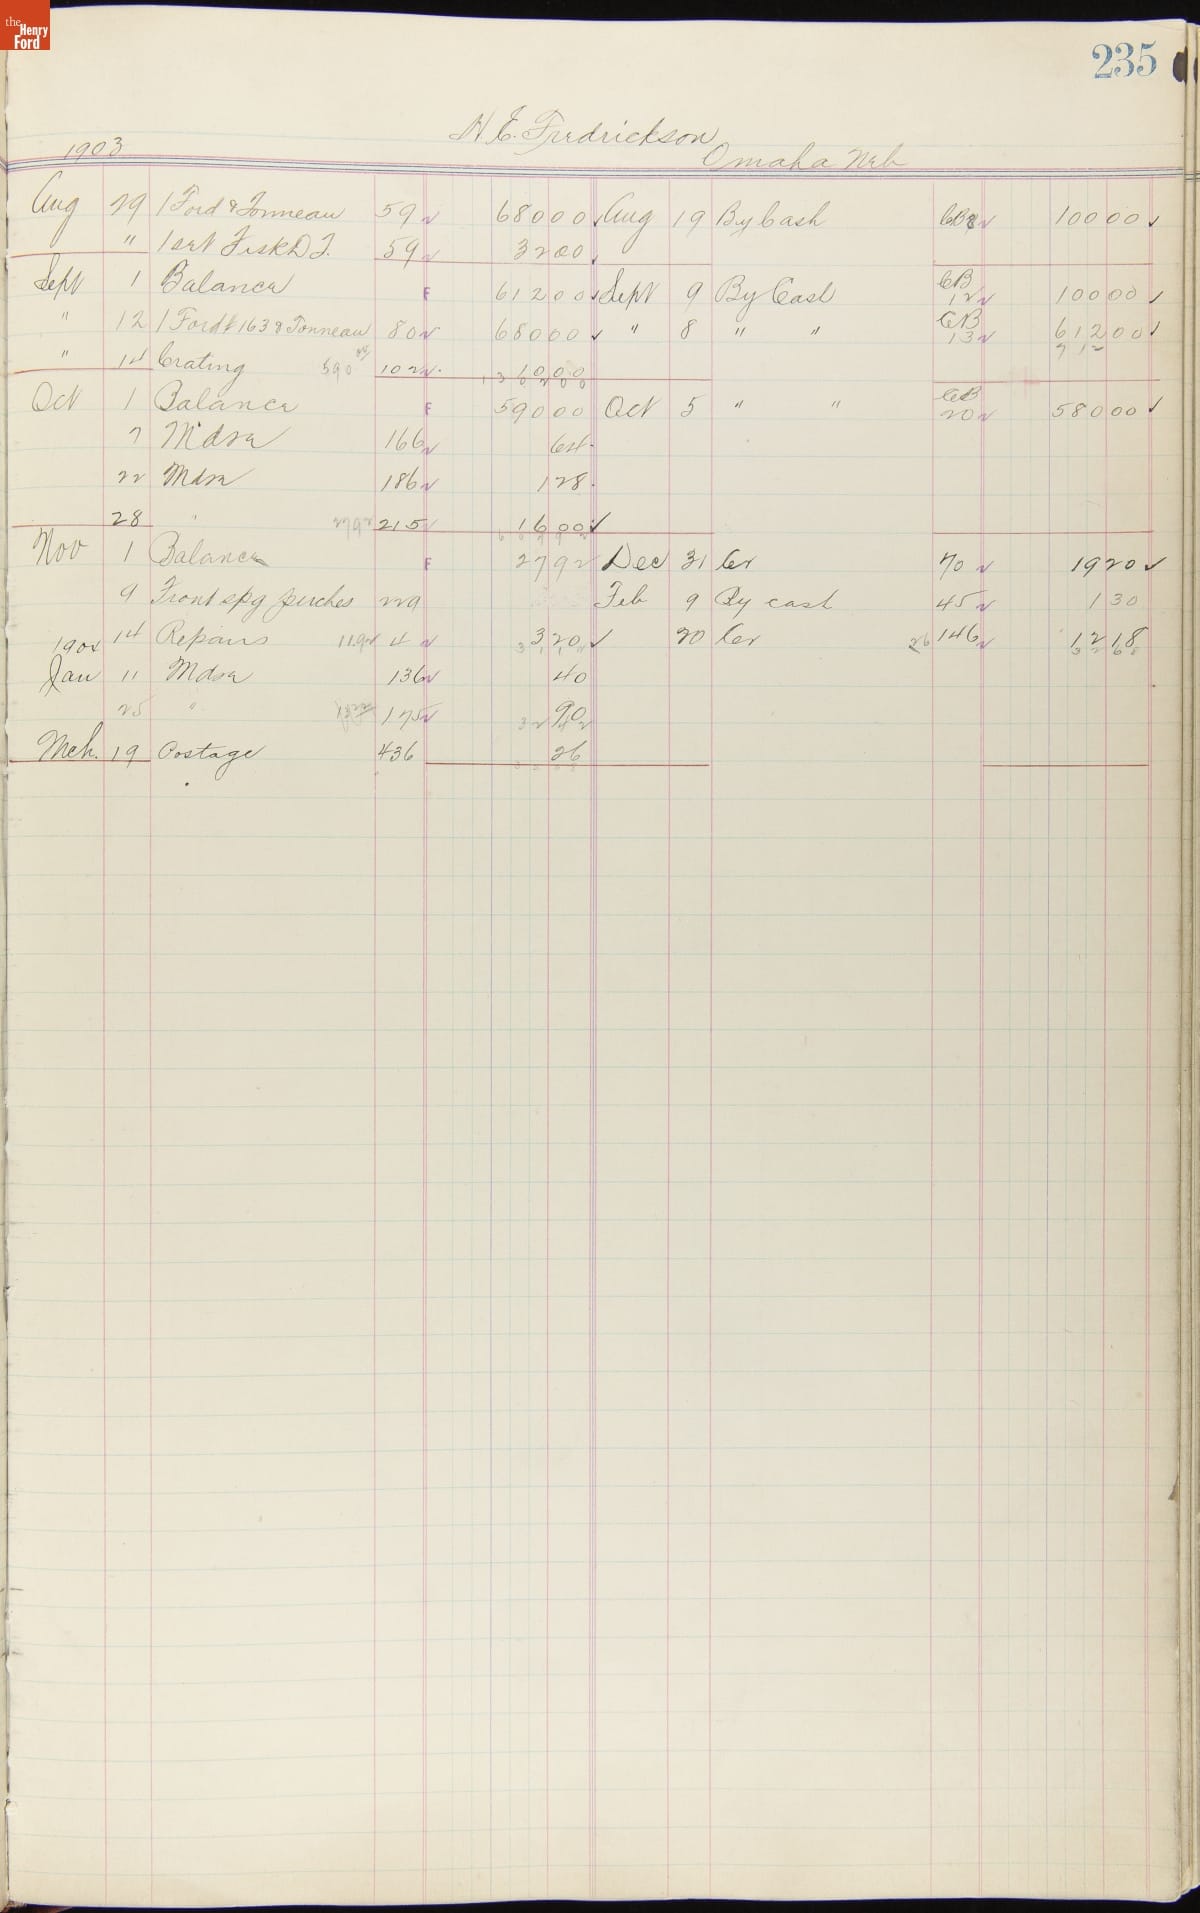 the Henry Ford
235
H. E. Fredrickson
1903 Omaha Neb
Aug 29 1 Ford & Tonneau 59 680 00 Aug 19 By Cash CB 8 100 00
" 1 set Fisk D.T. 59 32 00
Sept 1 Balance F 612 00 Sept 9 By Cash CB 12 100 00
" 12 1 Ford # 163 & Tonneau 80 680 00 " 8 " " CB 13 612 00
712
" 14 Crating 590 00 102 10 00
1302 00
Oct 1 Balance F 590 00 Oct 5 " " CB 20 580 00
7 Mdse 166 64
22 Mdse 186 1 28
28 " 27 92 215 16 00
Nov 1 Balance F 27 92 Dec 31 Cr 70 19 20
9 Front spg perches 229 Feb 9 By cash 45 1 30
1904 14 Repairs 11.92 4 3 20 20 Cr 26 146 12 18
31 12 32 68
Jan 11 Mdse 136 40
25 " 175 90
32 42
Mch. 19 Postage 436 26
32 68